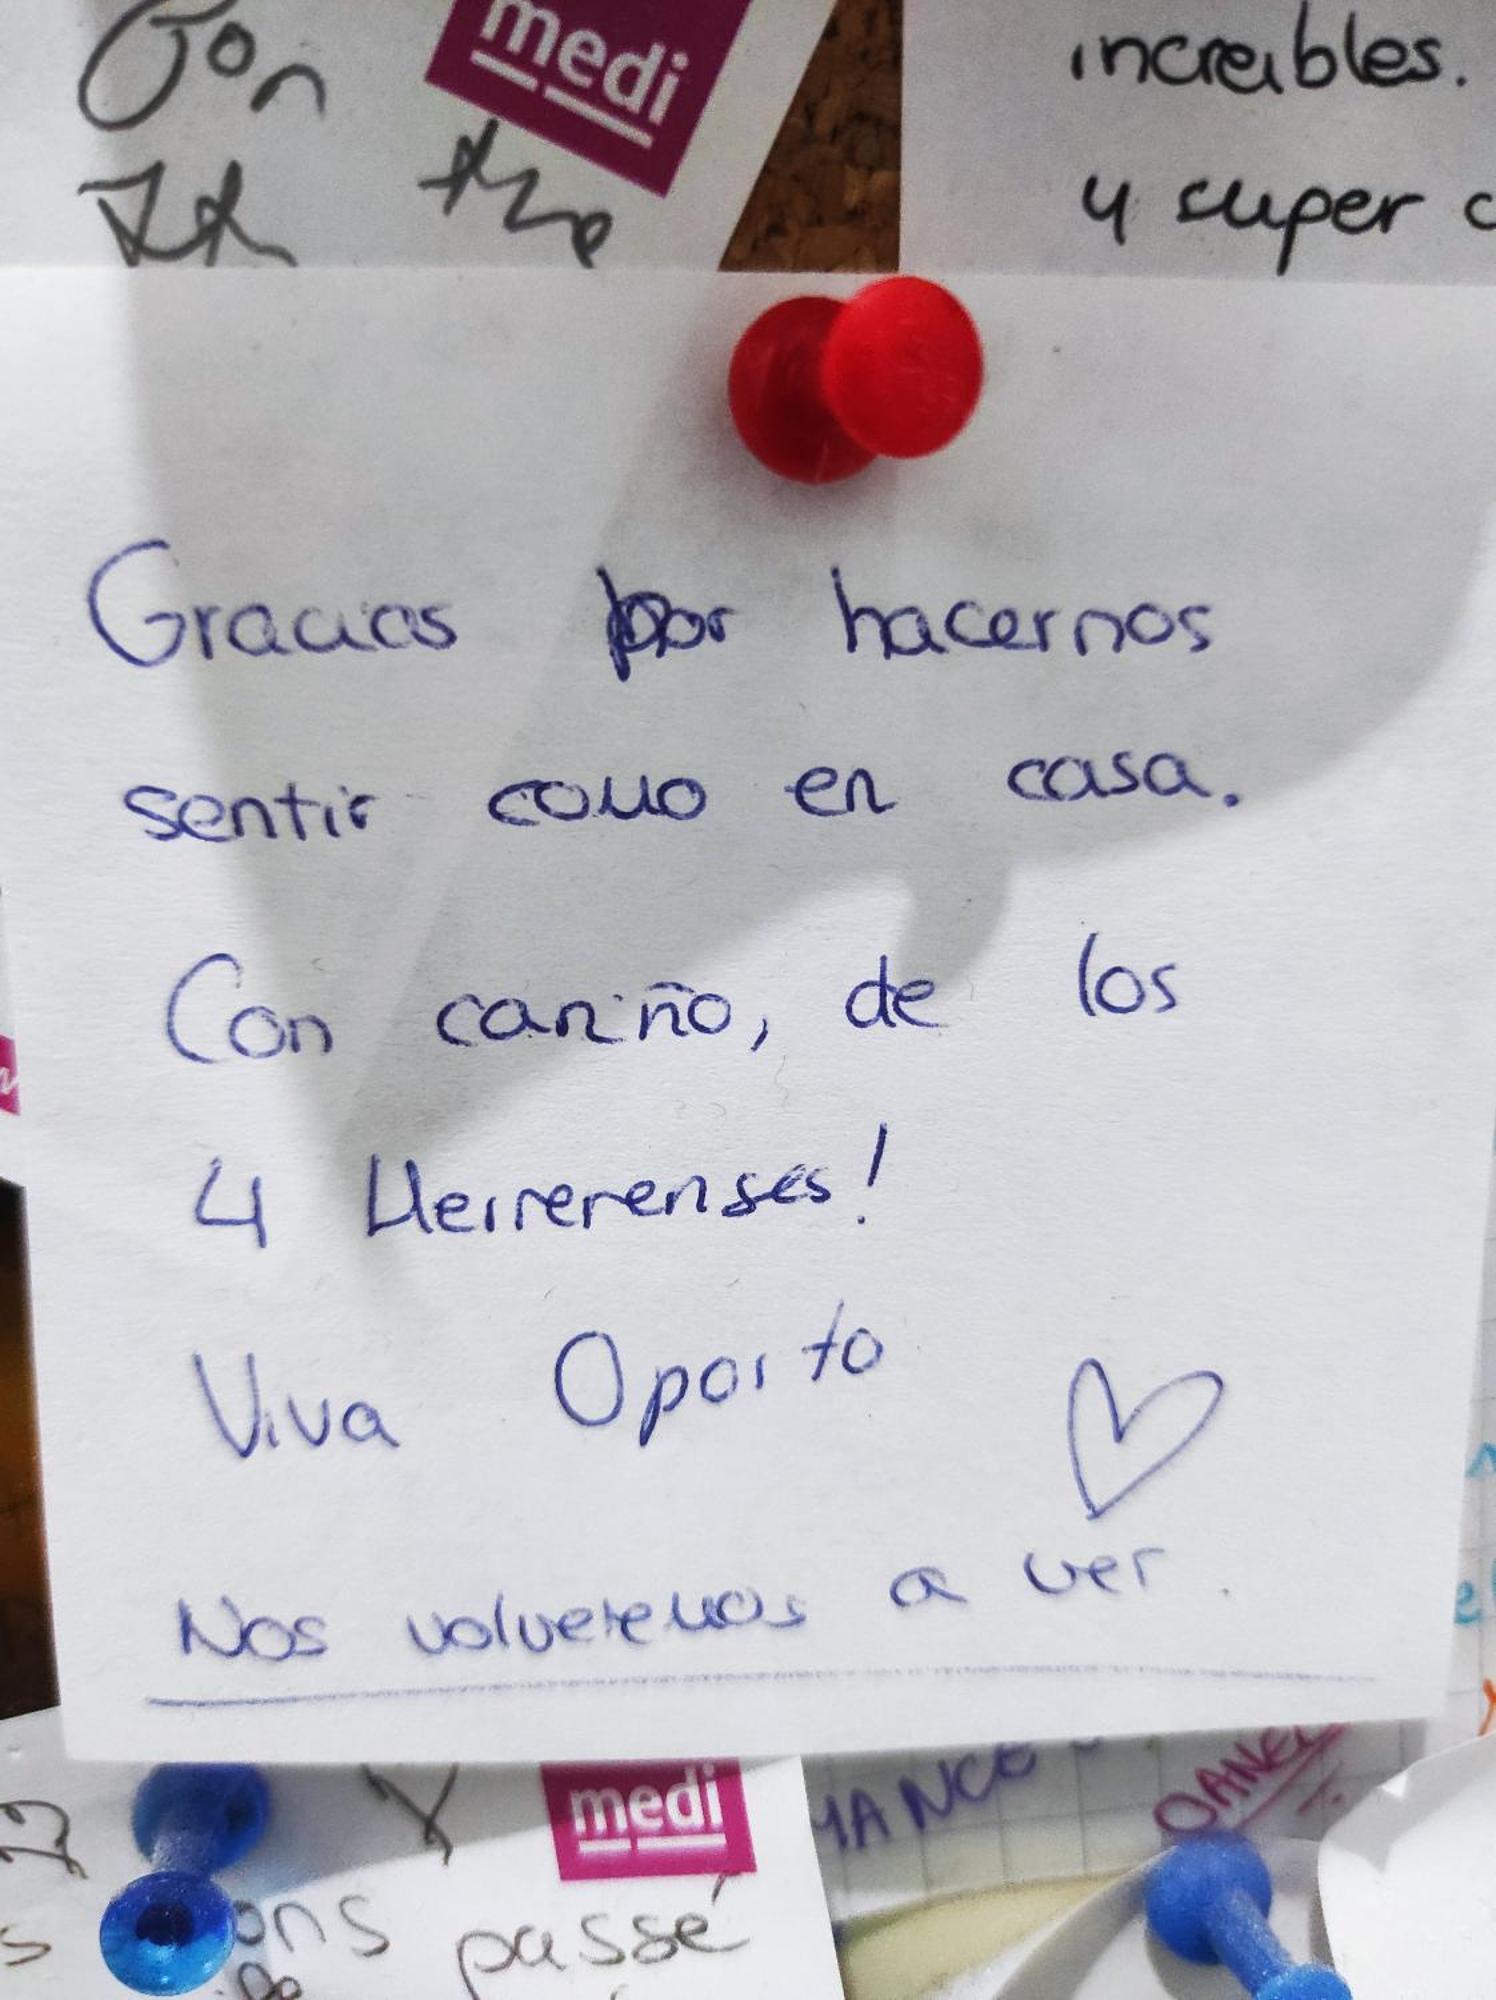 Jon
medi
increibles.
y super
Gracias por hacernos
sentir como en casa.
Con cariño, de los
4 Herrerenses!
Viva Oporto
Nos volveremos a ver.
Y
medi
ons passé